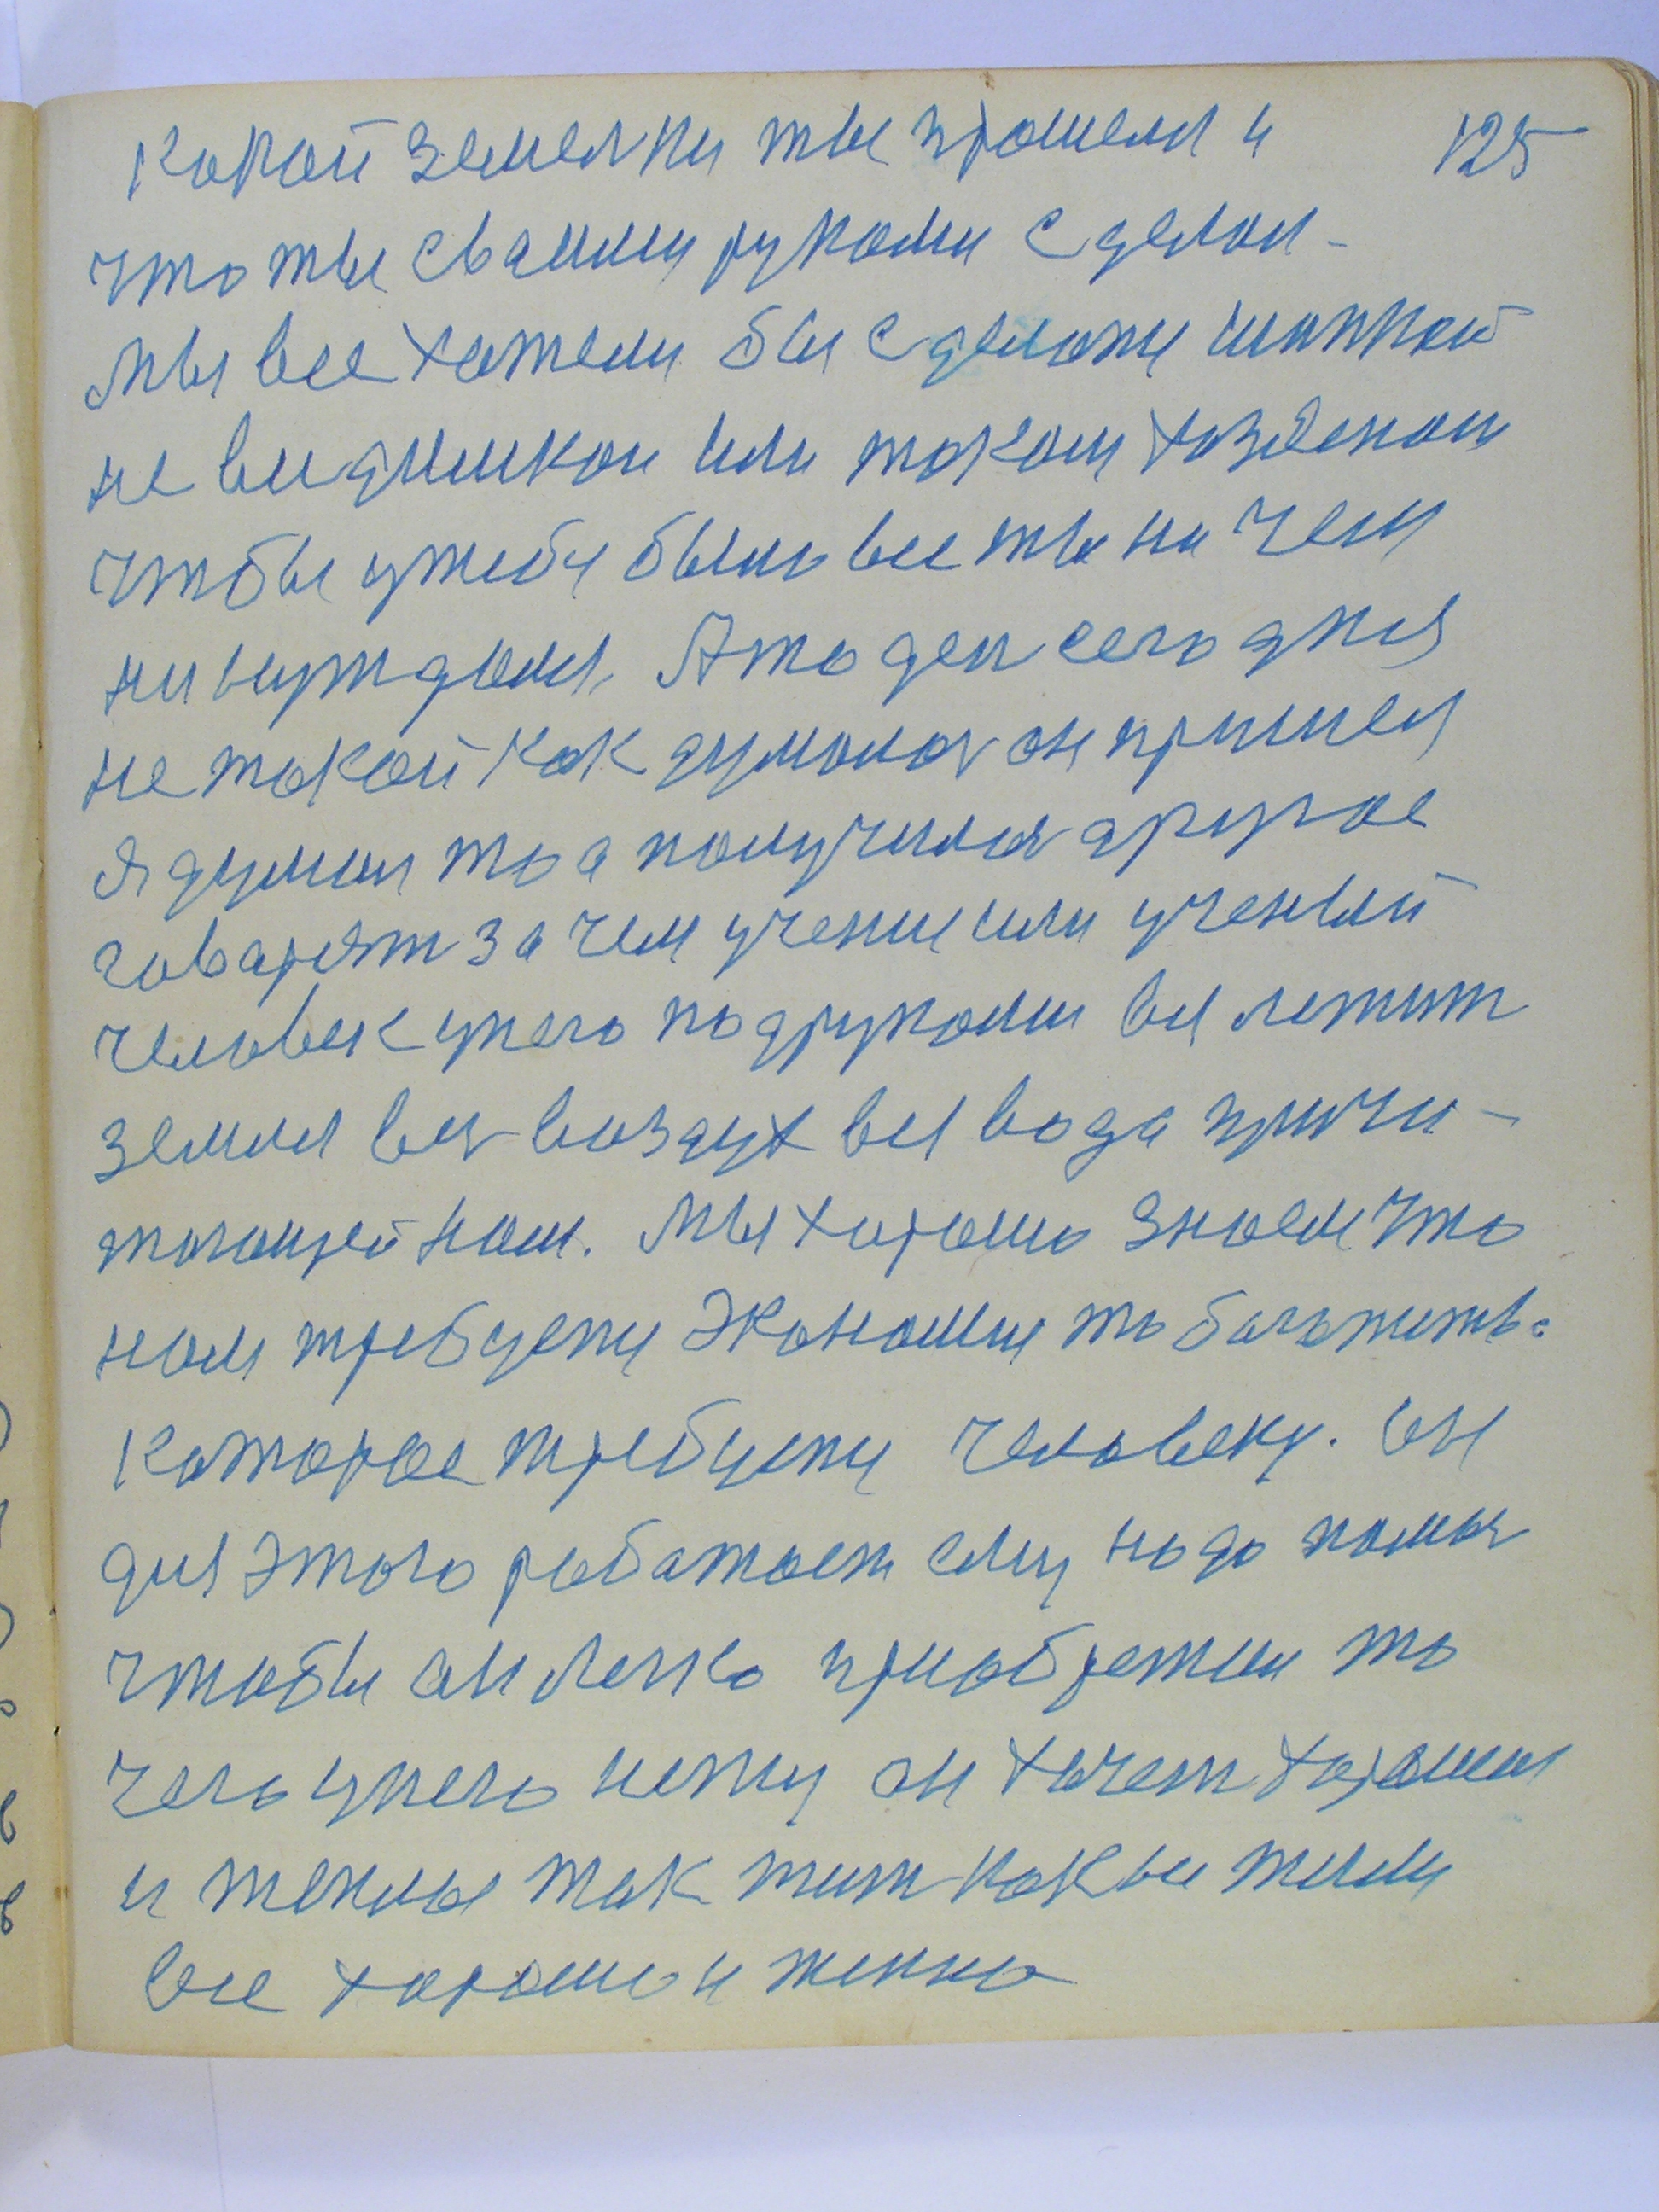 Какой земелки ты прошел и 125
что ты сваими руками сделал-
мы все хатели бы сделати шапкой
не видимкой или таким хазяеном
чтобы утебя было все ты ни чем
ни нуждался. А то ден сегодня
не такой как думалося он пришел
я думал то а получился другое
говарят за чем учение или ученый
человек унего под руками вся летит
земля вся воздух вся вода причи-
тающей нам. Мы хорошо знаем что
нам требуети Экономии то багатств.
каторое требуети человеку. Он
для этого работает ему надо помоч
чтобы он легко приобретил то
чего унего нету он хочет хорошего
и теплые так жит как вы жили
все хорошо и тепло